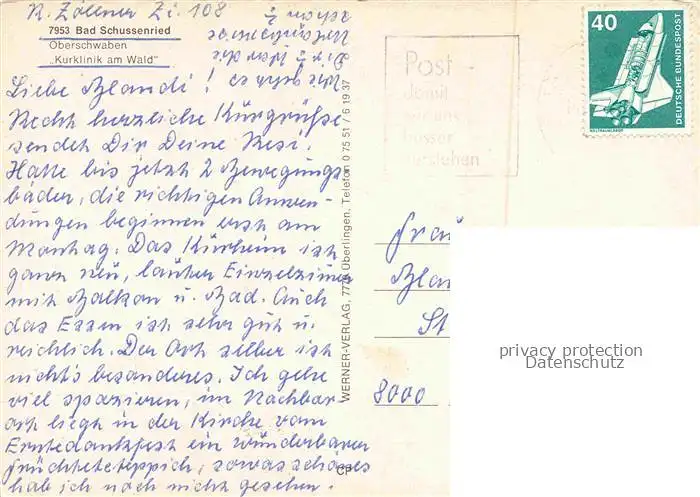 R. Zöllner Zi. 108
7953 Bad Schussenried
Oberschwaben
„Kurklinik am Wald"
Wie geht es
Dir?
schon
Liebe Blandi!
Recht herzliche Kurgrüße
sendet Dir Deine Resi.
Hatte bis jetzt 2 Bewegungs-
bäder, die richtigen Anwen-
dungen beginnen erst am
Montag. Das Kurheim ist
ganz neu, lauter Einzelzimmer
mit Balkon u. Bad. Auch
das Essen ist sehr gut u.
reichlich. Der Ort selber ist
nicht's besonderes. Ich gehe
viel spazieren, im Nachbar
ort liegt in der Kirche vom
Erntedankfest ein wunderbarer
Früchteteppich, sowas schönes
hab ich noch nicht gesehen.
WERNER-VERLAG, 7770 Überlingen, Telefon 0 75 51 / 6 19 37
CP
Post
damit
wir uns
besser
verstehen
40
DEUTSCHE BUNDESPOST
WELTRAUMLABOR
Frau
Bla
St
8000
privacy protection
Datenschutz